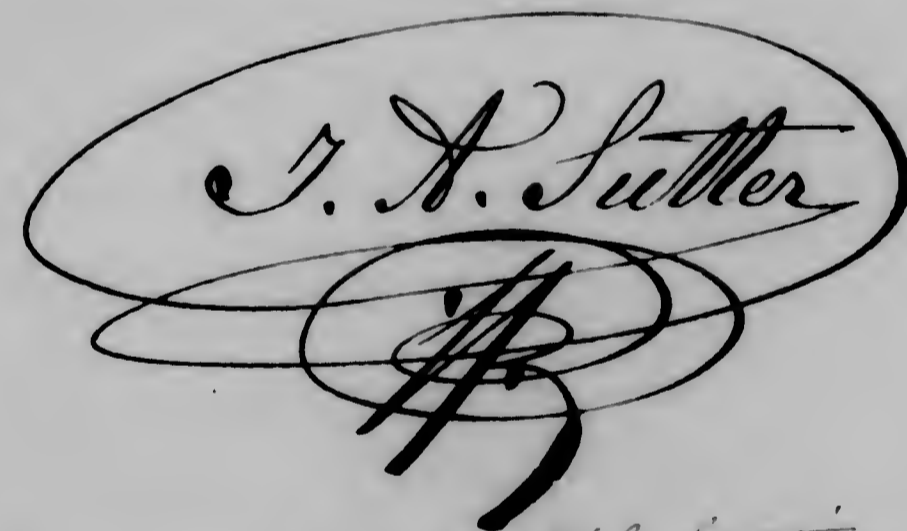 J. A. Sutter